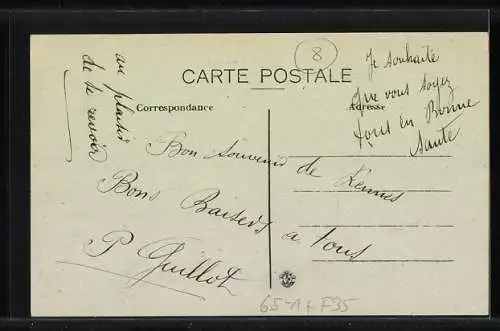 8
CARTE POSTALE
Correspondance
Adresse
Bon souvenir de Rennes
Bons Baisers a tous
P Guillot
au plaisir
de te revoir
Je souhaite
que vous soyez
tous en Bonne
Santé
65-1+F35